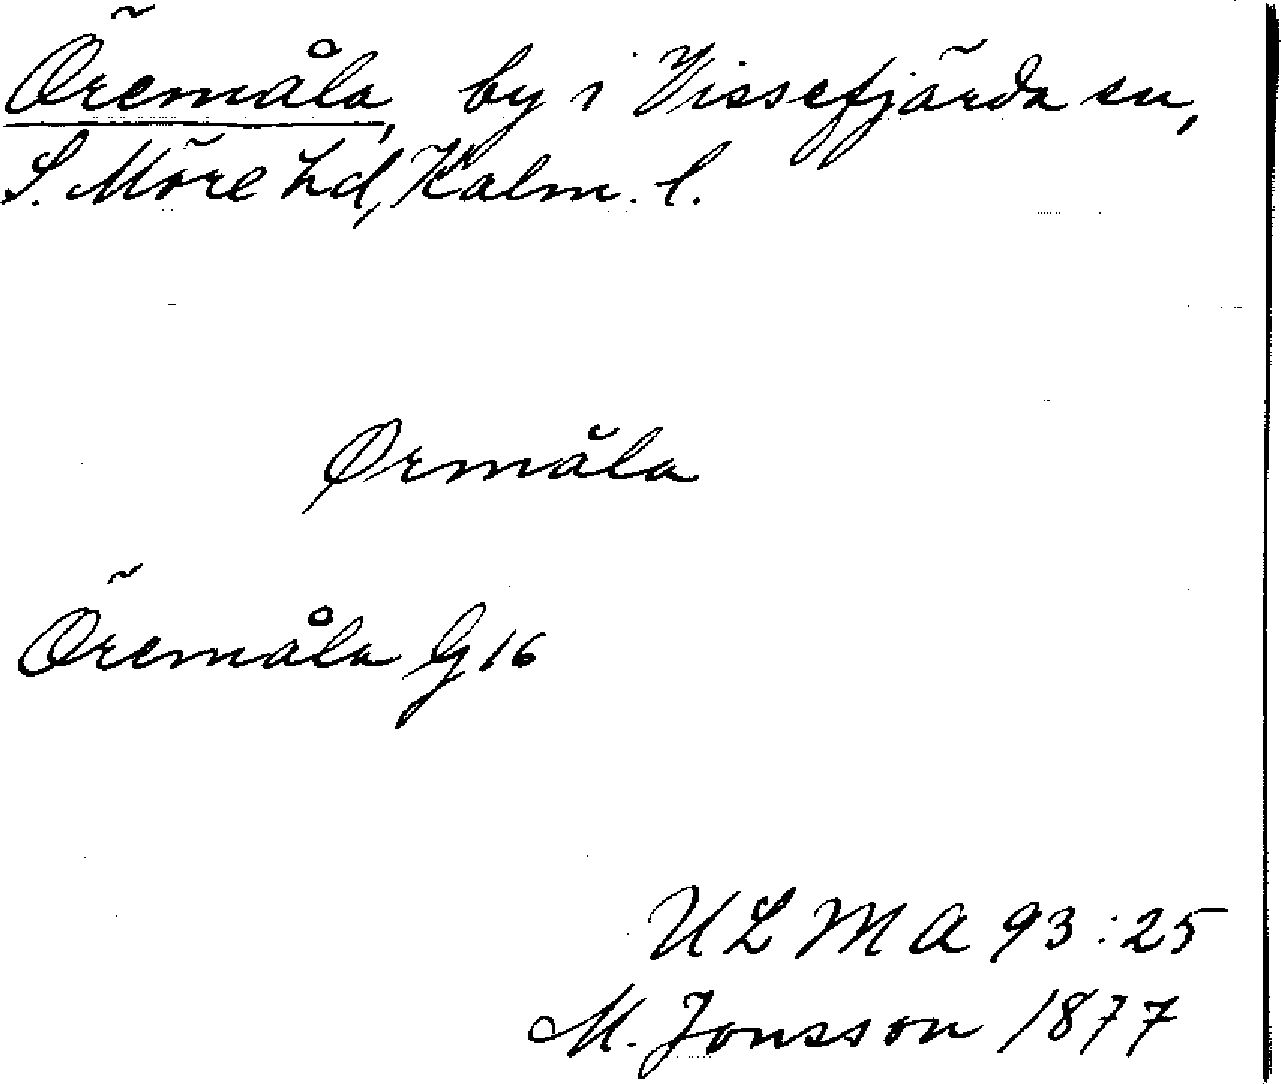 Öremåla, by i Vissefjärda sn,
S. Möre hd, Kalm. l.
Ørmåla
Öremåla G 16
ULMA 93:25
M. Jonsson 1877